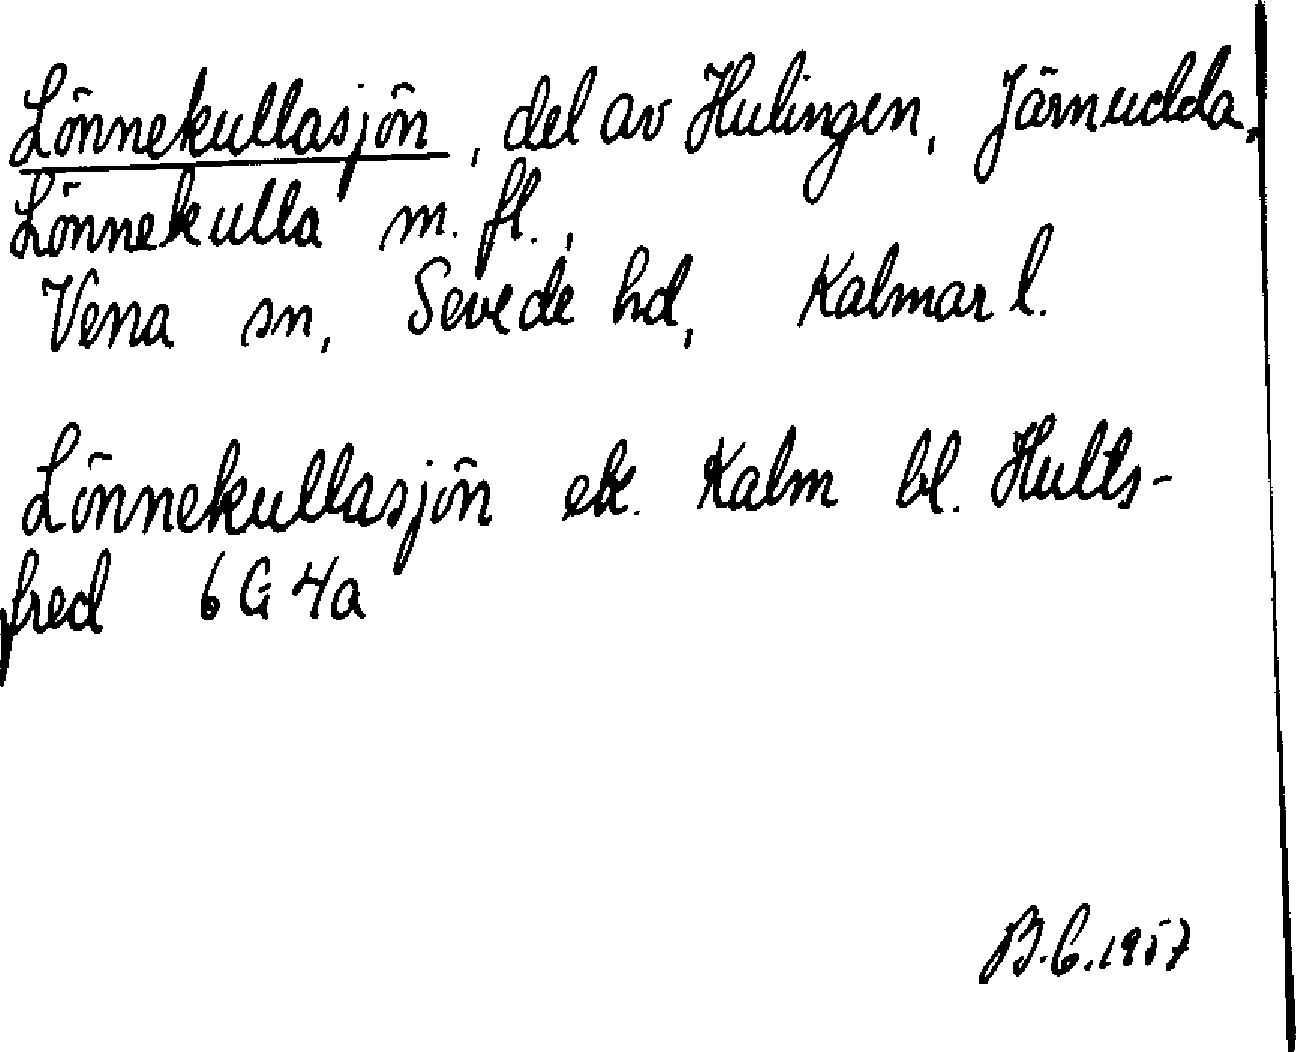 Lönnekullasjön, del av Hulingen, Järnudda,
Lönnekulla m. fl.,
Vena sn, Sevede hd, Kalmar l.
Lönnekullasjön ek. Kalm bl. Hults-
fred 6 G 4a
B.C. 1957